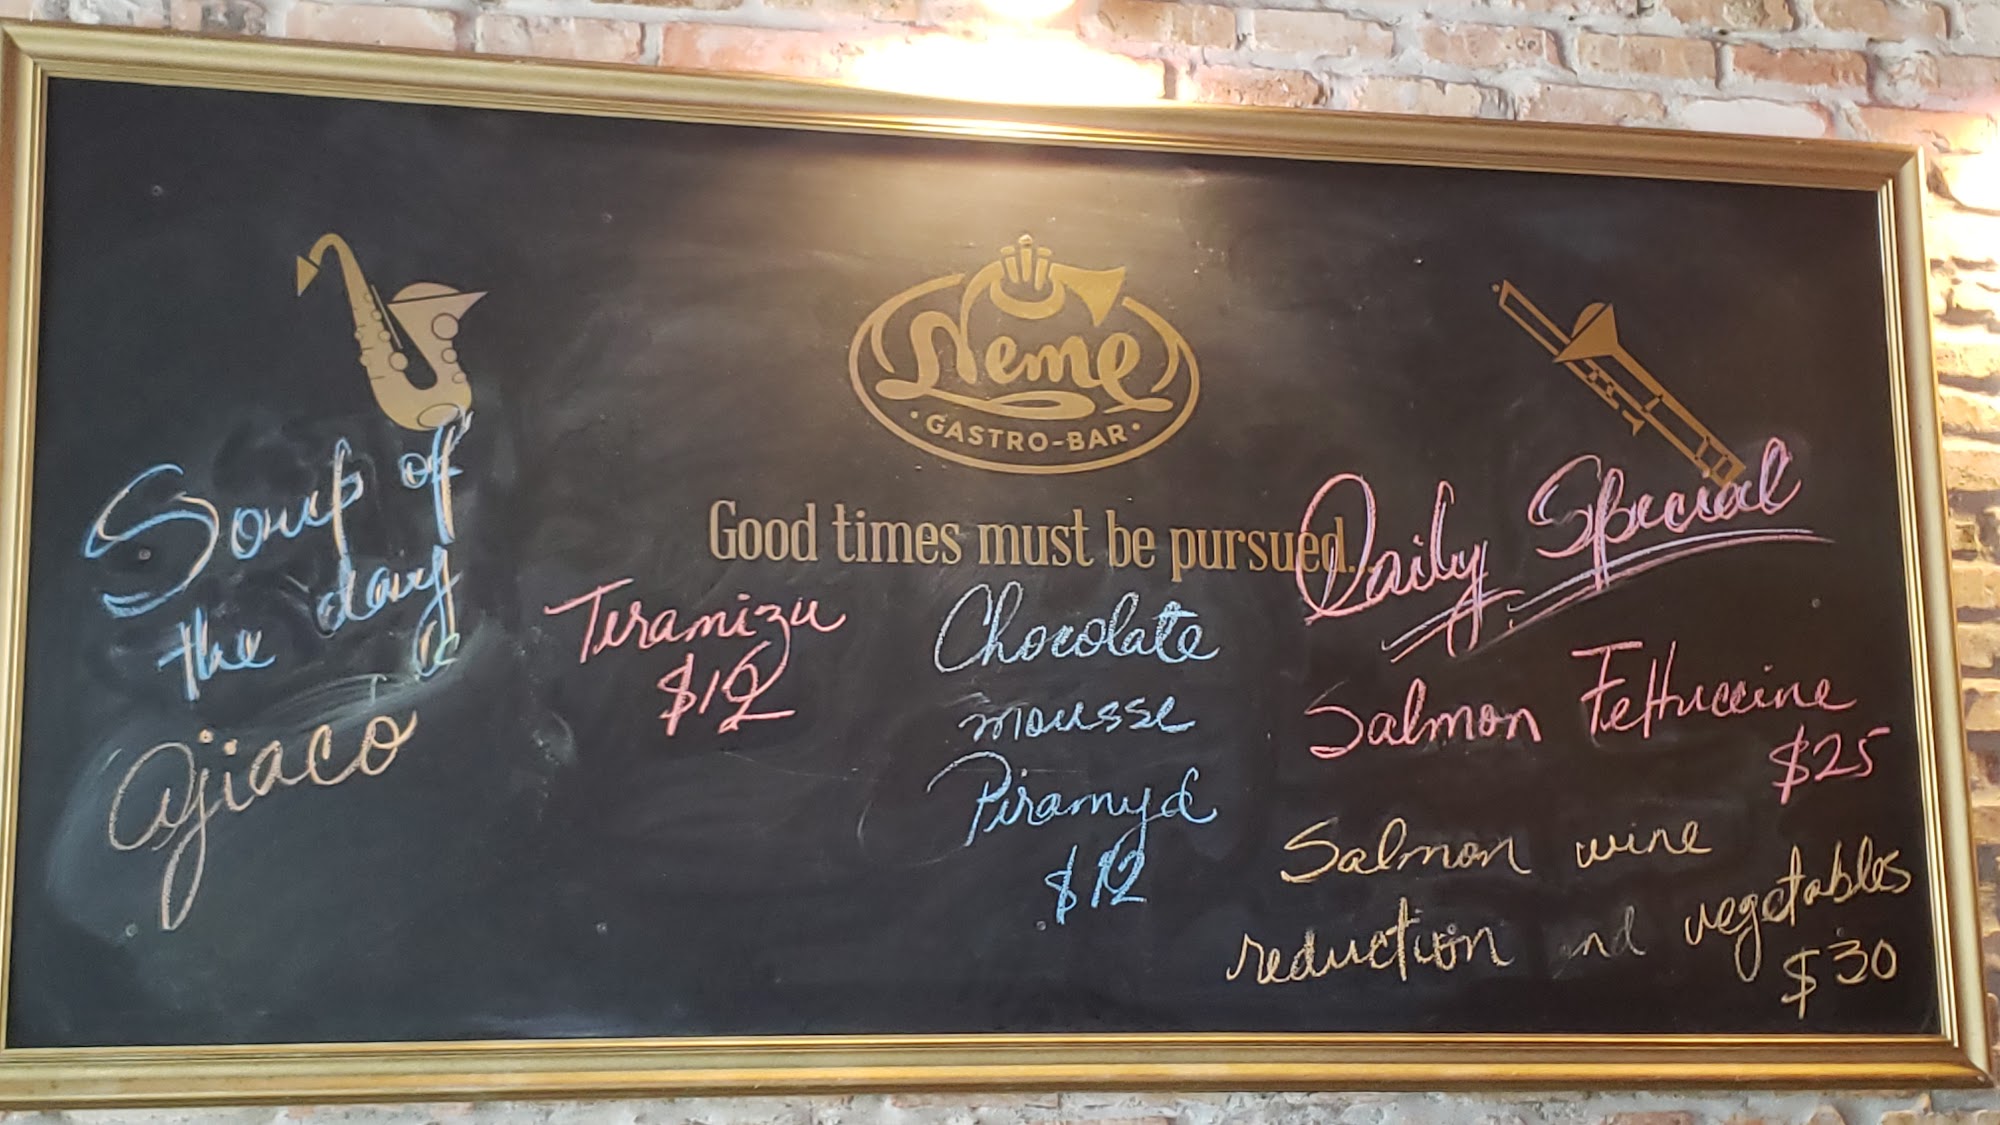 Neme
GASTRO-BAR
Good times must be pursued...
Soup of
the day
ajiaco
Teramizu
$12
Chocolate
mousse
Piramyd
$12
Daily Special
Salmon Fettuccine
$25
Salmon wine
reduction and vegetables
$30